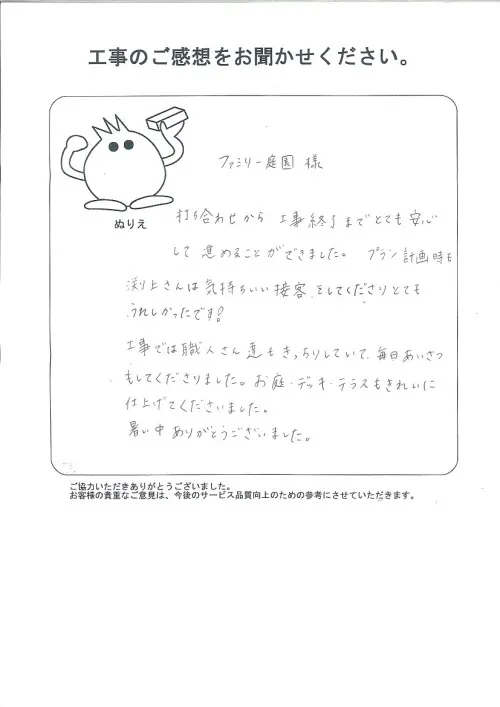 工事のご感想をお聞かせください。
ぬりえ
ファミリー庭園 様
打ち合わせから 工事終了までとても 安心
して 進めることができました。 プラン計画時も
渕上さんは気持ちいい接客をしてくださりとても
うれしかったです!
工事では職人さん達もきっちりしていて、毎日あいさつ
もしてくださりました。お庭・デッキ・テラスもきれいに
仕上げてくださいました。
暑い中ありがとうございました。
ご協力いただきありがとうございました。
お客様の貴重なご意見は、今後のサービス品質向上のための参考にさせていただきます。